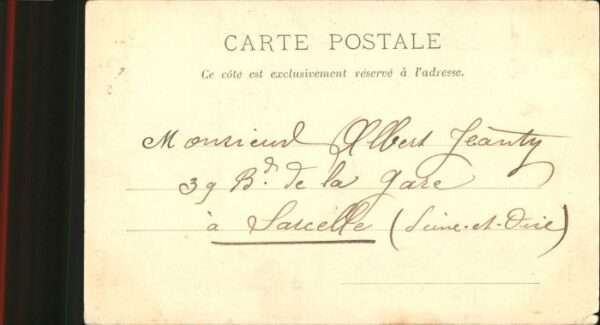 CARTE POSTALE
Ce côté est exclusivement réservé à l'adresse.
Monsieur Albert Jeanty
39 Bd. de la Gare
à Sarcelle (Seine-et-Oise)